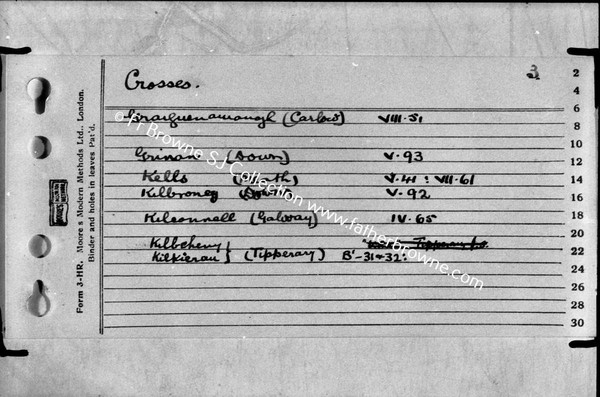 Crosses.
3
Graiguenamanagh (Carlow) VIII-51
(Down) V-93
Kells (Meath) V-41 : VII-61
Kilbroney (Down) V-92
Kilconnell (Galway) IV-65
Kilkieran } (Tipperary) B'-31+32:
2
4
6
8
10
12
14
16
18
20
22
24
26
28
30
Form 3-HR. Moore's Modern Methods Ltd., London.
Binder and holes in leaves Pat'd.
© Fr Browne SJ Collection www.fatherbrowne.com